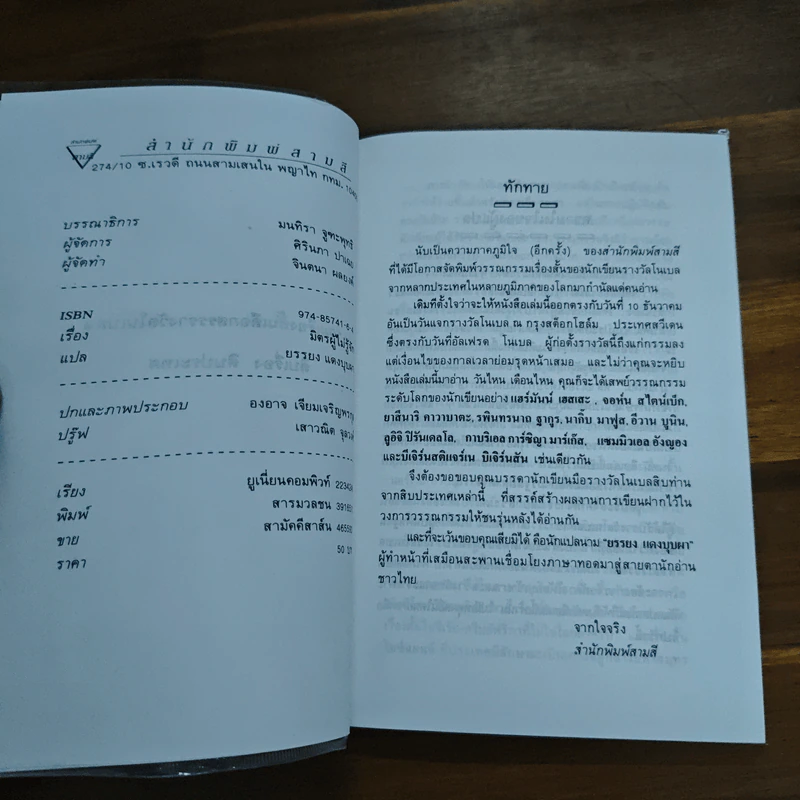 สำนักพิมพ์สามสี
274/10 ซ.เรวดี ถนนสามเสนใน พญาไท กทม.
บรรณาธิการ มนทิรา จูฑะพุทธิ
ผู้จัดการ ศิรินภา
ผู้จัดทำ จินตนา
ISBN 974-85741-6-
เรื่อง มิตรผู้ไม่รู้จัก
แปล ยรรยง แดงบุบผา
ปกและภาพประกอบ องอาจ เจียมเจริญพรกุล
ปรู๊ฟ เสาวณิต
เรียง ยูเนี่ยนคอมพิวท์
พิมพ์ สารมวลชน
ขาย สามัคคีสาส์น
ราคา 50 บาท
ทักทาย
นับเป็นความภาคภูมิใจ (อีกครั้ง) ของสำนักพิมพ์สามสี
ที่ได้มีโอกาสจัดพิมพ์วรรณกรรมเรื่องสั้นของนักเขียนรางวัลโนเบล
จากหลากประเทศในหลายภูมิภาคของโลกมากำนัลแด่คนอ่าน
เดิมทีตั้งใจว่าจะให้หนังสือเล่มนี้ออกตรงกับวันที่ 10 ธันวาคม
อันเป็นวันแจกรางวัลโนเบล ณ กรุงสต็อกโฮล์ม ประเทศสวีเดน
ซึ่งตรงกับวันที่อัลเฟรด โนเบล ผู้ก่อตั้งรางวัลนี้ถึงแก่กรรมลง
แต่เงื่อนไขของกาลเวลาย่อมรุดหน้าเสมอ และไม่ว่าคุณจะหยิบ
หนังสือเล่มนี้มาอ่าน วันไหน เดือนไหน คุณก็จะได้เสพย์วรรณกรรม
ระดับโลกของนักเขียนอย่าง แฮร์มันน์ เฮสเสะ, จอห์น สไตน์เบ็ก,
ยาสึนาริ คาวาบาตะ, รพินทรนาถ ฐากูร, นากิ๊บ มาฟูส, อีวาน บูนิน,
ลูอิจิ ปิรันเดลโล, กาบริเอล การ์ซิญา มาร์เก๊ส, แซมมิวเอล อังญอง
และบีเจิร์นสติแจร์เน บิเจิร์นสัน เช่นเดียวกัน
จึงต้องขอขอบคุณบรรดานักเขียนมือรางวัลโนเบลสิบท่าน
จากสิบประเทศเหล่านี้ ที่สรรค์สร้างผลงานการเขียนฝากไว้ใน
วงการวรรณกรรมให้ชนรุ่นหลังได้อ่านกัน
และที่จะเว้นขอบคุณเสียมิได้ คือนักแปลนาม "ยรรยง แดงบุบผา"
ผู้ทำหน้าที่เสมือนสะพานเชื่อมโยงภาษาทอดมาสู่สายตานักอ่าน
ชาวไทย
จากใจจริง
สำนักพิมพ์สามสี